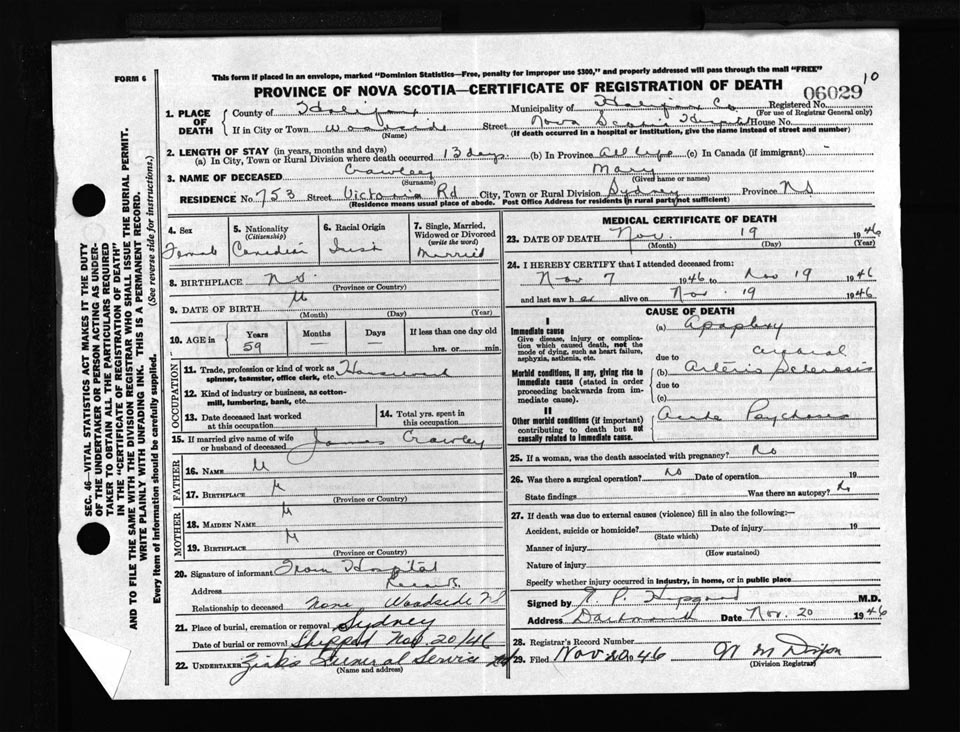 10
FORM 6
This form if placed in an envelope, marked "Dominion Statistics—Free, penalty for improper use $300," and properly addressed will pass through the mail "FREE"
PROVINCE OF NOVA SCOTIA—CERTIFICATE OF REGISTRATION OF DEATH 06029
1. PLACE OF DEATH County of Halifax Municipality of Halifax Co Registered No. (For use of Registrar General only)
If in City or Town Woodside (Name) Street Nova Scotia Hospital House No.
(If death occurred in a hospital or institution, give the name instead of street and number)
2. LENGTH OF STAY (in years, months and days)
(a) In City, Town or Rural Division where death occurred 13 days (b) In Province All life (c) In Canada (if immigrant) -
3. NAME OF DECEASED Crawley (Surname) Mary (Given name or names)
RESIDENCE No. 753 Street Victoria Rd City, Town or Rural Division Sydney Province NS
(Residence means usual place of abode. Post Office Address for residents in rural parts not sufficient)
4. Sex Female
5. Nationality (Citizenship) Canadian
6. Racial Origin Irish
7. Single, Married, Widowed or Divorced (write the word) Married
8. BIRTHPLACE N S. (Province or Country)
9. DATE OF BIRTH U (Month) (Day) (Year)
10. AGE in Years 59 Months — Days — If less than one day old hrs. or min.
OCCUPATION
11. Trade, profession or kind of work as spinner, teamster, office clerk, etc. Housework
12. Kind of industry or business, as cotton-mill, lumbering, bank, etc.
13. Date deceased last worked at this occupation
14. Total yrs. spent in this occupation
15. If married give name of wife or husband of deceased James Crawley
FATHER
16. NAME U
17. BIRTHPLACE U (Province or Country)
MOTHER
18. MAIDEN NAME U
19. BIRTHPLACE U (Province or Country)
20. Signature of informant From Hospital
Address Records.
Relationship to deceased None Woodside NS
21. Place of burial, cremation or removal Sydney
Date of burial or removal Shipped Nov. 20/46
22. UNDERTAKER Funeral Service Ltd
(Name and address)
MEDICAL CERTIFICATE OF DEATH
23. DATE OF DEATH Nov. 19 1946
(Month) (Day) (Year)
24. I HEREBY CERTIFY that I attended deceased from:
Nov 7 1946 to Nov 19 1946
and last saw her alive on Nov. 19 1946
CAUSE OF DEATH
I
Immediate cause
Give disease, injury or complication which caused death, not the mode of dying, such as heart failure, asphyxia, asthenia, etc.
(a) Apoplexy
due to cerebral
Morbid conditions, if any, giving rise to immediate cause (stated in order proceeding backwards from immediate cause).
(b) Arterio Sclerosis
due to
(c)
II
Other morbid conditions (if important) contributing to death but not causally related to immediate cause.
Acute Psychosis
25. If a woman, was the death associated with pregnancy? No
26. Was there a surgical operation? No Date of operation 19
State findings Was there an autopsy? No
27. If death was due to external causes (violence) fill in also the following:—
Accident, suicide or homicide? Date of injury 19
(State which)
Manner of injury
(How sustained)
Nature of injury
Specify whether injury occurred in industry, in home, or in public place
Signed by M.D.
Address Dartmouth Date Nov. 20 1946
28. Registrar's Record Number
29. Filed Nov 20 1946 W M Dixon
(Division Registrar)
SEC. 46—VITAL STATISTICS ACT MAKES IT THE DUTY
OF THE UNDERTAKER OR PERSON ACTING AS UNDER-
TAKER TO OBTAIN ALL THE PARTICULARS REQUIRED
IN THE "CERTIFICATE OF REGISTRATION OF DEATH"
AND TO FILE THE SAME WITH THE DIVISION REGISTRAR WHO SHALL ISSUE THE BURIAL PERMIT.
WRITE PLAINLY WITH UNFADING INK. THIS IS A PERMANENT RECORD.
Every item of information should be carefully supplied. (See reverse side for instructions.)